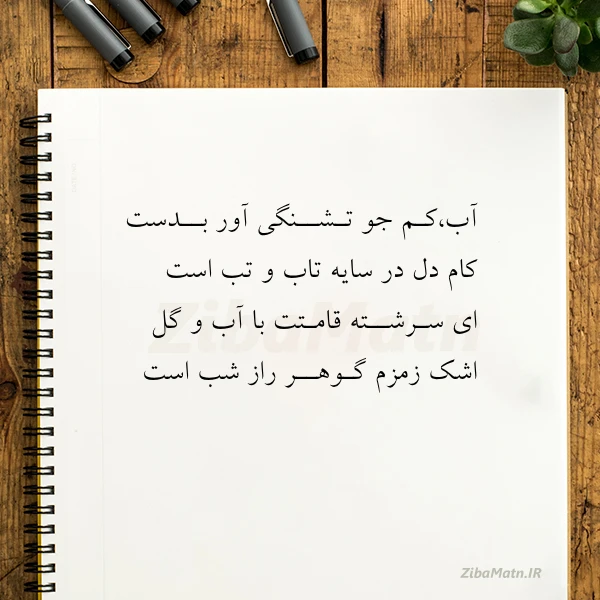 آب،کم جو تشنگی آور بدست
کام دل در سایه تاب و تب است
ای سرشته قامتت با آب و گل
اشک زمزم گوهر راز شب است
ZibaMatn
ZibaMatn.IR